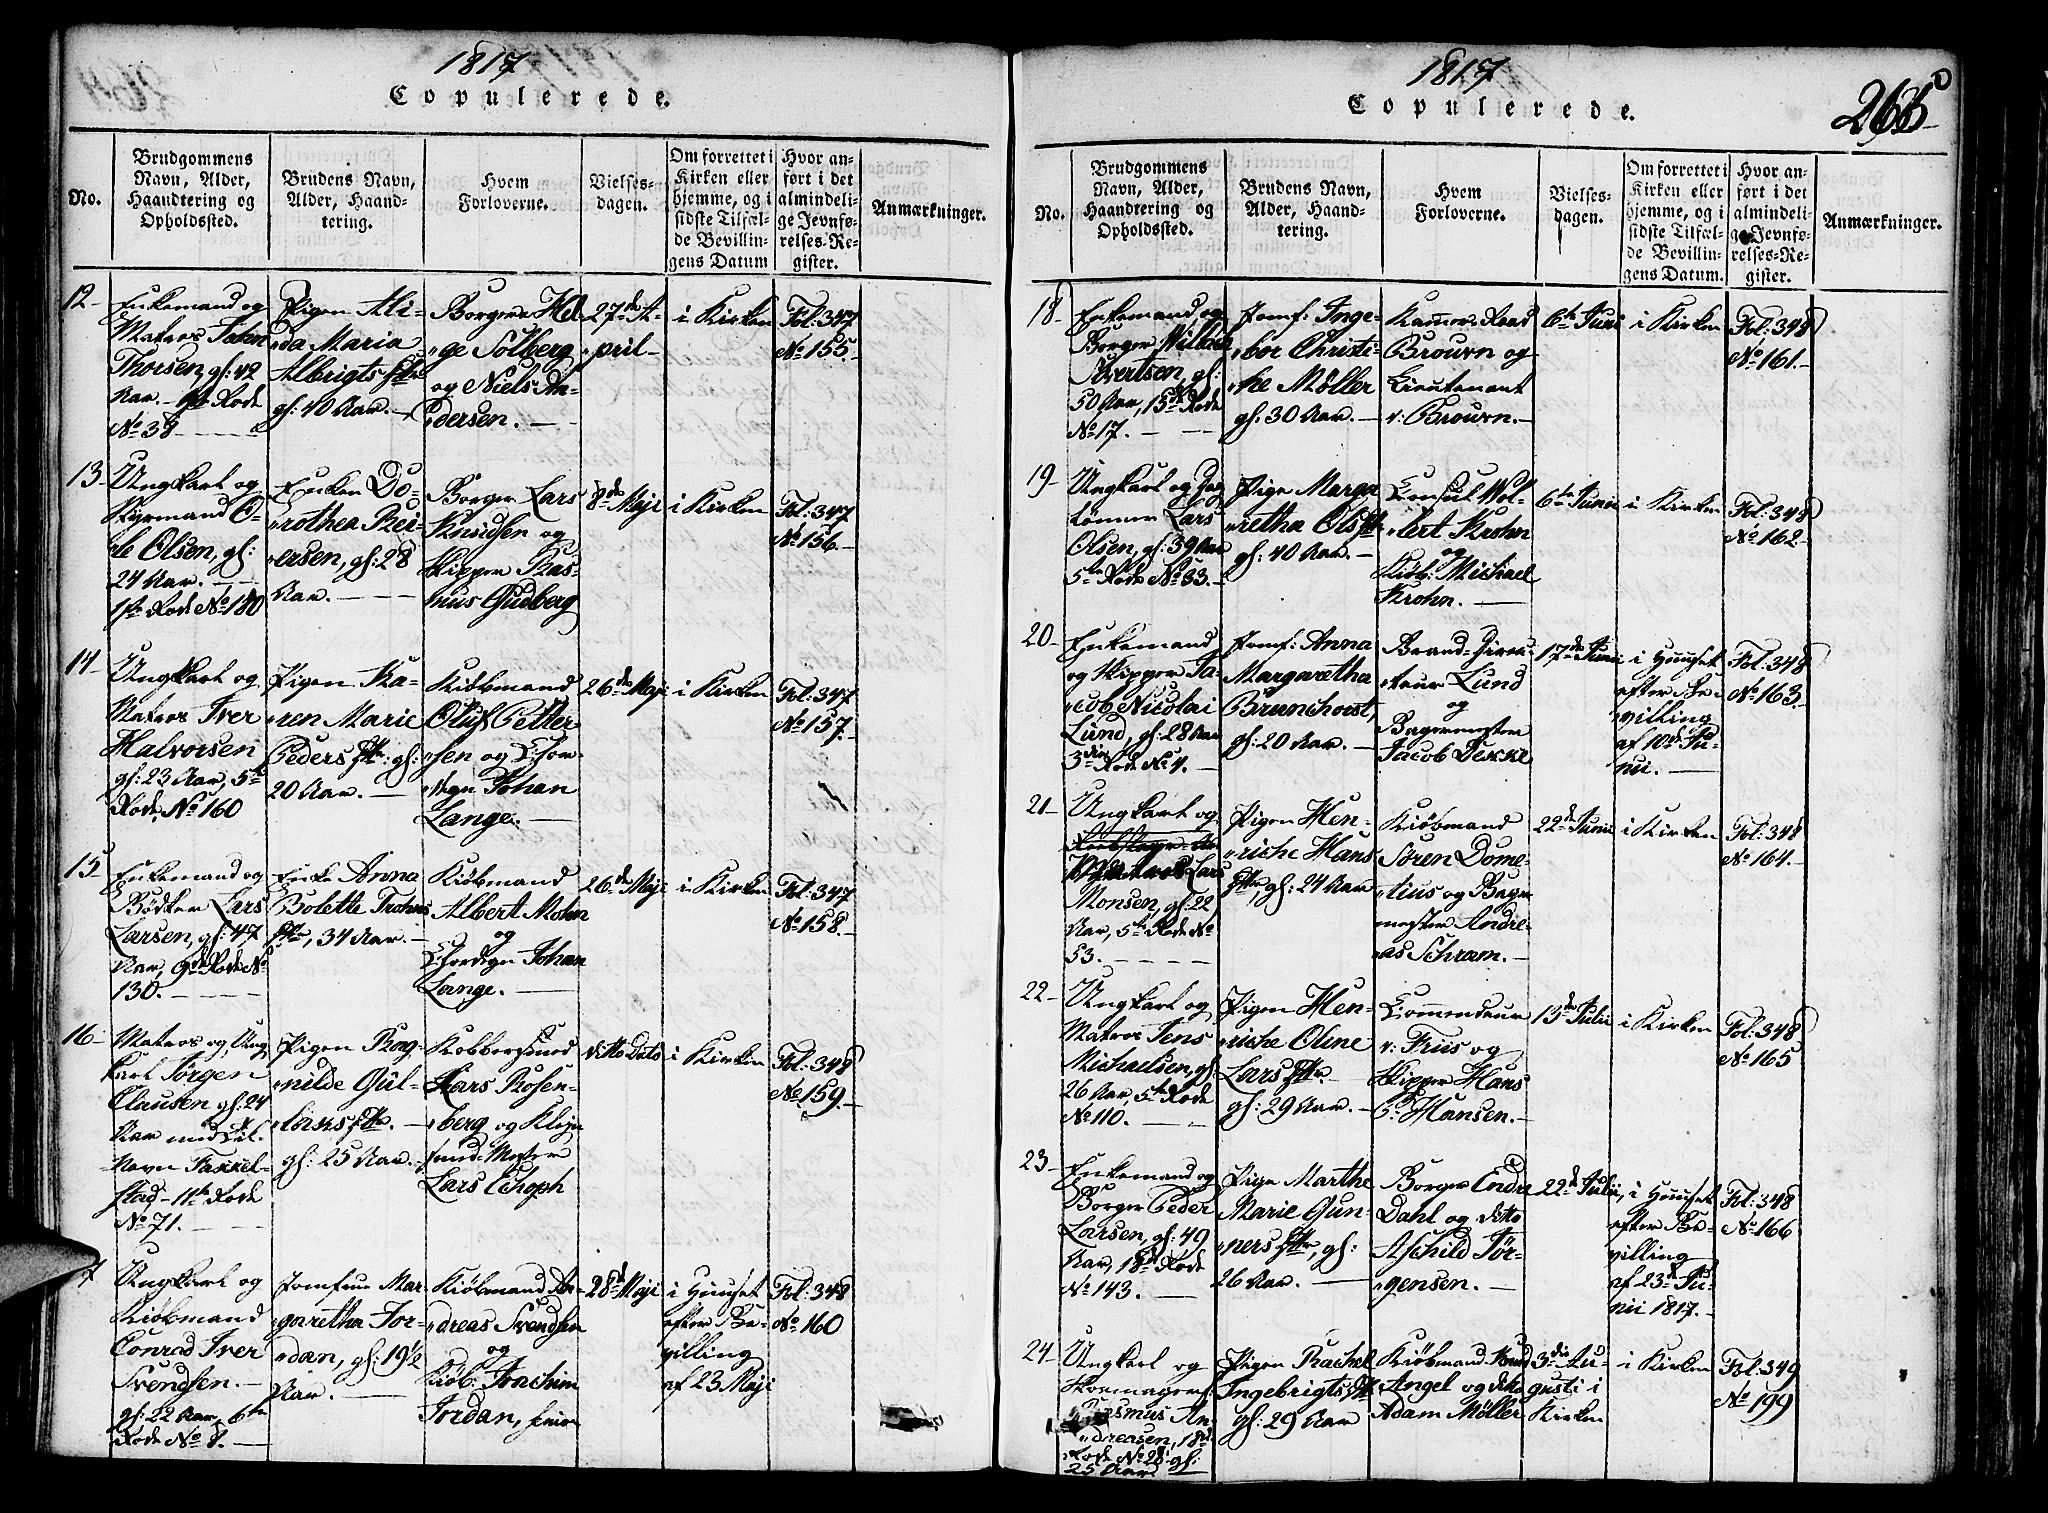 1817
Copulerede.
No.
Brudgommens
Navn, Alder,
Haandtering og
Opholdssted.
Brudens Navn,
Alder, Haand-
tering.
Hvem
Forloverne.
Vielses-
dagen.
Om forrettet i
Kirken eller
hjemme, og i
sidste Tilfæl-
de Bevillin-
gens Datum
Hvor an-
ført i det
almindeli-
ge Jevnfø-
relses-Re-
gister.
Anmærkninger.
12
Enkemand og
Matros
Thorsen, gl: 42
Aar. Rode
No 38
Pigen Ali-
da Maria
Albrigts
gl: 40 Aar.
Borgere Hel-
ge Solberg
og Niels An-
dersen.
27de A-
pril
i Kirken
Fol: 347
No 155.
13
Ungkarl og
Styrmand O-
le Olsen, gl:
24 Aar.
1ste Rode No 180
Enken Do-
rothea Rei-
ersen, gl: 28
Aar.
Borger Lars
Knudsen og
Skipper Ras-
mus Gudberg
8de Maji
i Kirken
Fol: 347
No 156.
14
Ungkarl og
Matros Iver
Halvorsen
gl: 23 Aar, 5te
Rode, No 160
Pigen Ka-
ren Marie
Peders gl:
20 Aar.
Kiøbmand
Oluf Petter-
sen og Chor-
degn Johan
Lange.
26de Maji
i Kirken
Fol: 347
No 157.
15
Enkemand og
Bødker Lars
Larsen, gl: 47
Aar, 9de Rode No
130.
Enke Anna
Bolette Frohns
34 Aar.
Kiøbmand
Albert Mohn
og
Chordegn Johan
Lange.
26de Maji
i Kirken
Fol: 347
No 158.
16
Matros og Ung
karl Jørgen
Clausen gl: 24
Aar med Til-
navn Fakkel-
stad 11te Rode
No 71.
Pigen Rag-
nilde Gul-
laks
gl: 25 Aar.
Kobbersmed
Lars Rosen-
berg og Klein
smed-Mester
Lars Echoph
ditto Dato
i Kirken
Fol: 348
No 159.
7
Ungkarl og
Kiøbmand
Conrad Iver
Svendsen.
gl: 22 Aar, 6te
Rode No 8.
Jomfrue Mar-
garetha Jor-
dan, gl: 19½
Aar.
Kiøbmand An-
dreas Svendsen
og
Kiøb: Joachim
Jordan, Senior
28de Maji
i Huuset
efter Be-
villing
af 23 Maji
Fol: 348
No 160
1817
265
Copulerede.
No.
Brudgommens
Navn, Alder,
Haandtering og
Opholdssted.
Brudens Navn,
Alder, Haand-
tering.
Hvem
Forloverne.
Vielses-
dagen.
Om forrettet i
Kirken eller
hjemme, og i
sidste Tilfæl-
de Bevillin-
gens Datum.
Hvor an-
ført i det
almindeli-
ge Jevnfø-
relses-Re-
gister.
Anmærkninger.
18
Enkemand og
Borger Willum
Sivertsen, gl:
50 Aar, 15de Rode
No 17.
Jomf: Inge-
bor Christi-
ne Møller
gl: 30 Aar.
Kammer-Raad
Brouvn og
Lieutenant
v: Brouvn.
6te Juni
i Kirken
Fol: 348
No 161.
19
Ungkarl og
tømmer Lars
Olsen, gl: 39 Aar
5te Rode No 33.
Pige Marga
retha Ols
gl: 40 Aar.
Consul Wol-
lert Krohn
og
Kiøb: Michael
Krohn.
6te Junii
i Kirken
Fol: 348
No 162.
20
Enkemand
og Skipper Ja-
cob Nicolai
Lund, gl: 28 Aar
3die Rode No 4.
Jomf: Anna
Margaretha
Brunchorst,
gl: 20 Aar.
Brand-Direc-
teur Lund
og
Bagermester
Jacob Dekke
17de Juni
i Huuset
efter Be-
villing
af 10de Ju-
nii.
Fol: 348
No 163.
21
Ungkarl og
Lars
Monsen, gl: 22
Aar, 5te Rode No
53.
Pigen Hen-
riche Hans
gl: 24 Aar
Kiøbmand
Søren Dome-
tius og Bager
mester Andre-
as Schram.
22de Junii
i Kirken
Fol: 348
No 164.
22
Ungkarl og
Matros Jens
Michaelsen, gl
26 Aar, 5te Rode
No 110.
Pigen Hen-
riche Oline
Lars
gl: 29 Aar.
Commendeur
v: Friis og
Skipper Hans
C: Hansen.
13de Julii
i Kirken
Fol: 348
No 165
23
Enkemand og
Borger Peder
Larsen, gl: 49
Aar, 18de Rode
No 143.
Pige Marthe
Marie Gun-
ners gl:
26 Aar.
Borger Endre
Dahl og ditto
Aschild Jør-
gensen.
22de Julii,
i Huuset
efter Be-
villing
af 23de Ju-
nii 1817.
Fol: 348
No 166
24
Ungkarl og
Skomager:
Rasmus An-
dreasen, 18de
Rode No 28: gl:
25 Aar
Pigen Rachel
Ingebrigts
gl: 29 Aar
Kiøbmand Knud
Angel og ditto
Adam Møller
3die Au-
gusti i
Kirken
i Kirken
Fol: 349
No 199